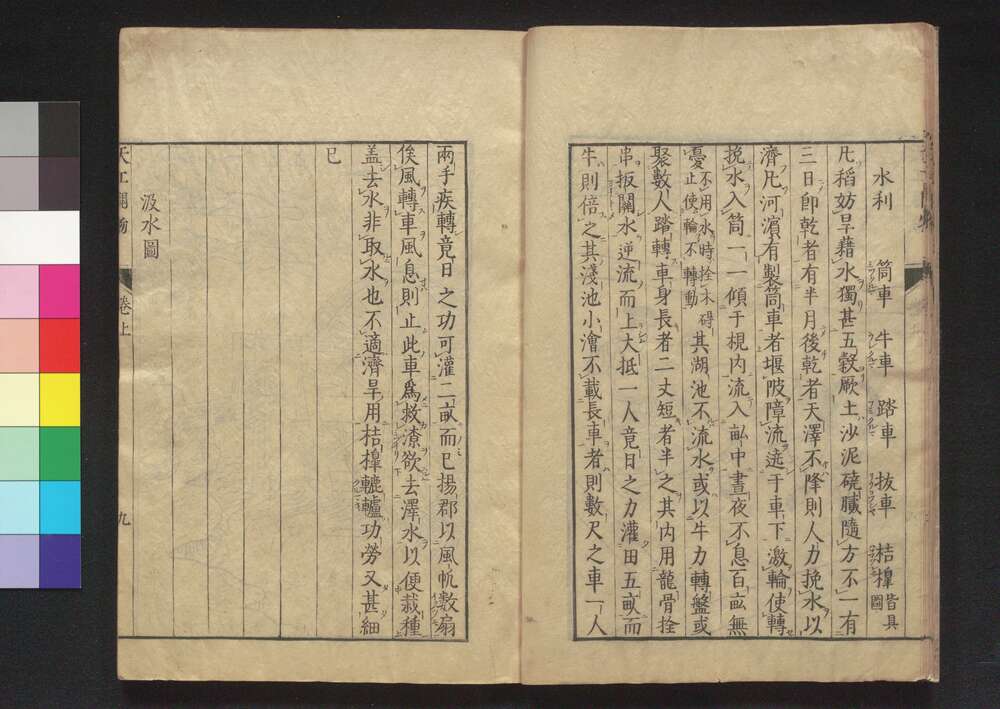 水利 筒車 牛車 踏車 拔車 桔槹 皆具圖
凡稻妨旱藉水獨甚五穀厥土沙泥磽膩隨方不一有
三日卽乾者有半月後乾者天澤不降則人力挽水以
濟凡河濱有製筒車者堰陂障流遶于車下激輪使轉
挽水入筒一一傾于梘內流入畝中晝夜不息百畝無
憂不用水時拴木碍止使輪不轉動其湖池不流水或以牛力轉盤或
聚數人踏轉車身長者二丈短者半之其內用龍骨拴
串板關水逆流而上大抵一人竟日之力灌田五畝而
牛則倍之其淺池小澮不載長車者則數尺之車一人
兩手疾轉竟日之功可灌二畝而已揚郡以風帆數扇
俟風轉車風息則止此車爲救潦欲去澤水以便栽種
盖去水非取水也不適濟旱用桔槹轆轤功勞又甚細
已
汲水圖
天工開物 卷上 九